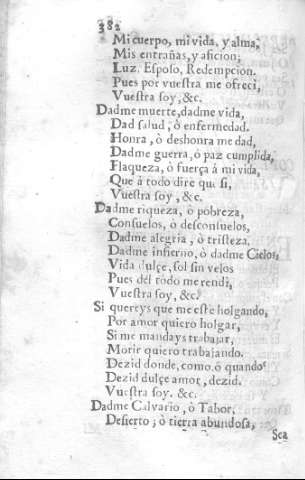 382
Mi cuerpo, mi vida, y alma,
Mis entrañas, y aficion;
Luz, Esposo, Redempcion.
Pues por vuestra me ofreci,
Vuestra soy, &c.
Dadme muerte, dadme vida,
Dad salud, ò enfermedad.
Honra, ò deshonra me dad,
Dadme guerra, ò paz cumplida,
Flaqueza, ò fuerça à mi vida,
Que à todo dire que si,
Vuestra soy, &c.
Dadme riqueza, ò pobreza,
Consuelos, ò desconsuelos,
Dadme alegria, ò tristeza.
Dadme infierno, ò dadme Cielos,
Vida dulçe, sol sin velos
Pues del todo me rendi,
Vuestra soy, &c.
Si quereys que me estè holgando,
Por amor quiero holgar,
Si me mandays trabajar,
Morir quiero trabajando.
Dezid donde, como, ó quando
Dezid dulçe amor, dezid.
Vuestra soy. &c.
Dadme Calvario, ò Tabor,
Desierto, ò tierra abundosa,
Sea